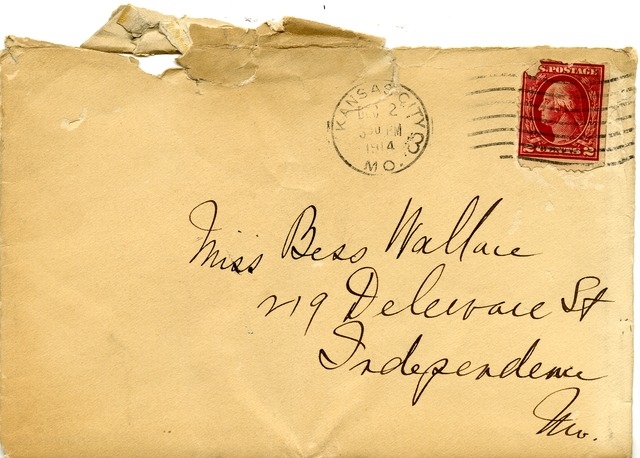 KANSAS CITY
2
30 PM
1914
MO.
3
U.S. POSTAGE
2 2
Miss Bess Wallace
219 Deleware St
Independence
Mo.